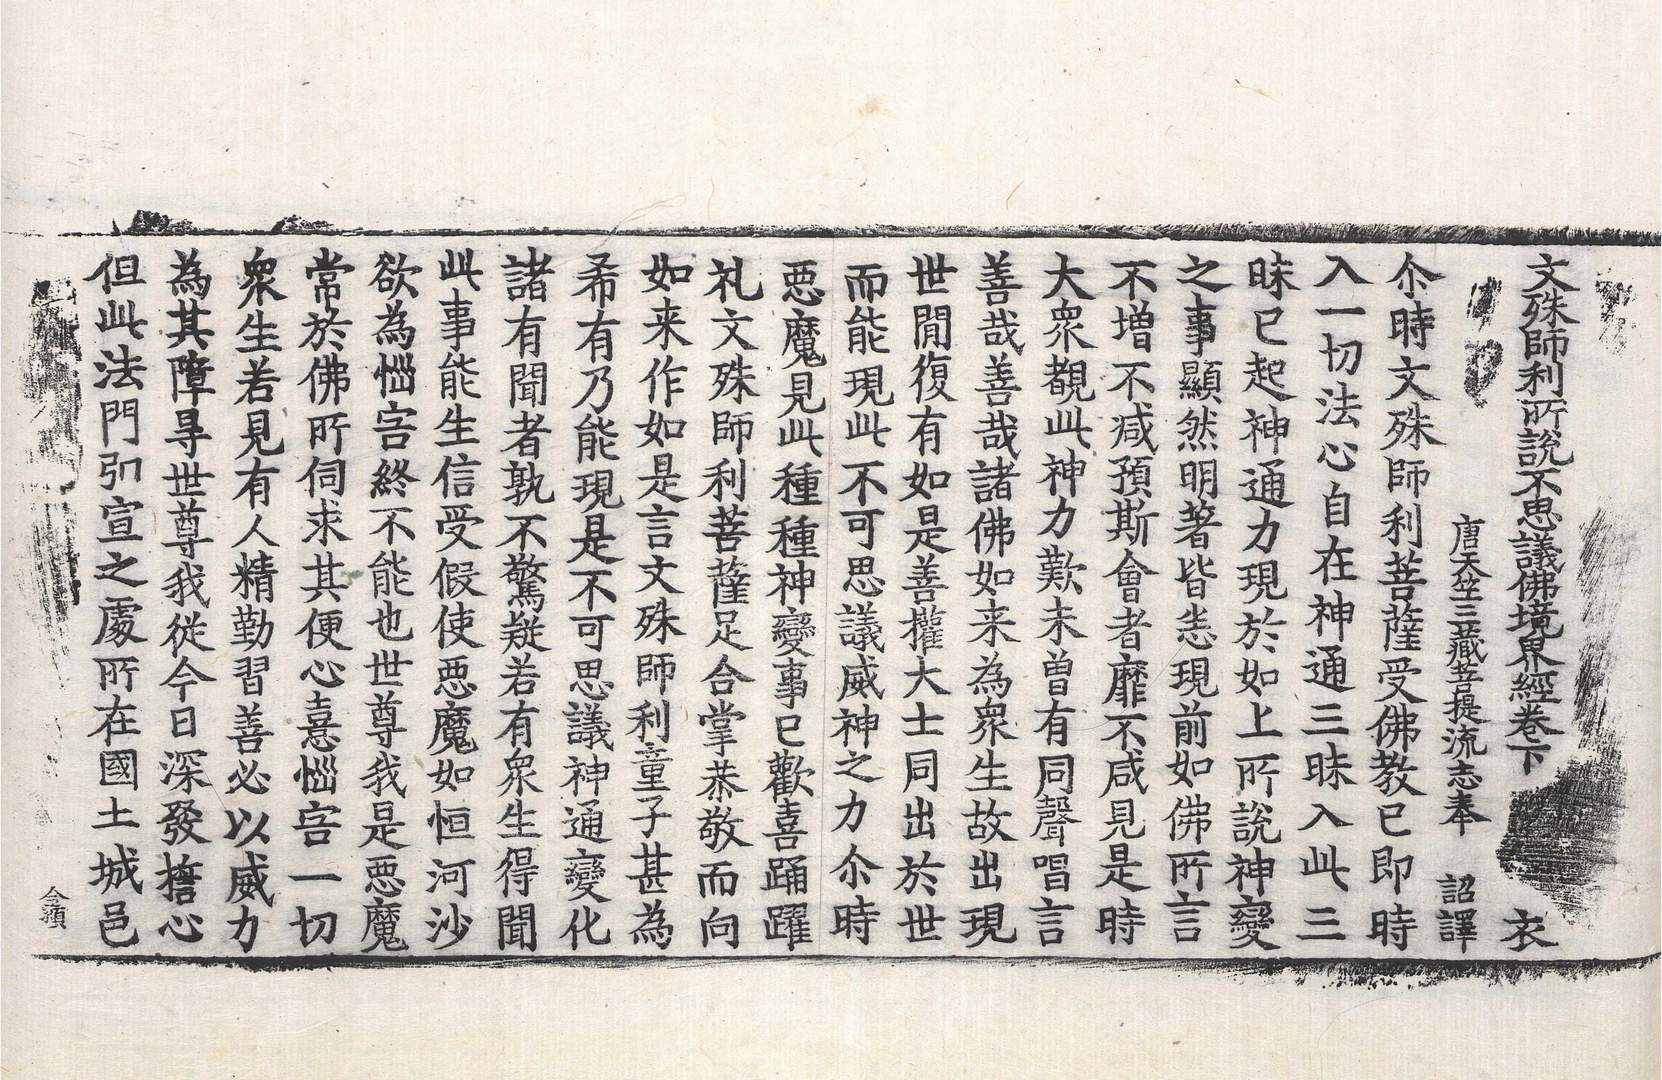 文殊師利所說不思議佛境界經卷下　衣
唐天竺三藏菩提流志奉　詔譯
尒時文殊師利菩薩受佛教已即時
入一切法心自在神通三昧入此三
昧已起神通力現於如上所說神變
之事顯然明著皆悉現前如佛所言
不增不減預斯會者靡不咸見是時
大衆覩此神力歎未曾有同聲唱言
善哉善哉諸佛如来為衆生故出現
世間復有如是善權大士同出於世
而能現此不可思議威神之力尒時
惡魔見此種種神變事已歡喜踊躍
礼文殊師利菩薩足合掌恭敬而向
如来作如是言文殊師利童子甚為
希有乃能現是不可思議神通變化
諸有聞者孰不驚疑若有衆生得聞
此事能生信受假使惡魔如恒河沙
欲為惱害終不能也世尊我是惡魔
常於佛所伺求其便心憙惱害一切
衆生若見有人精勤習善必以威力
為其障㝵世尊我從今日深發誓心
但此法門弘宣之處所在國土城邑